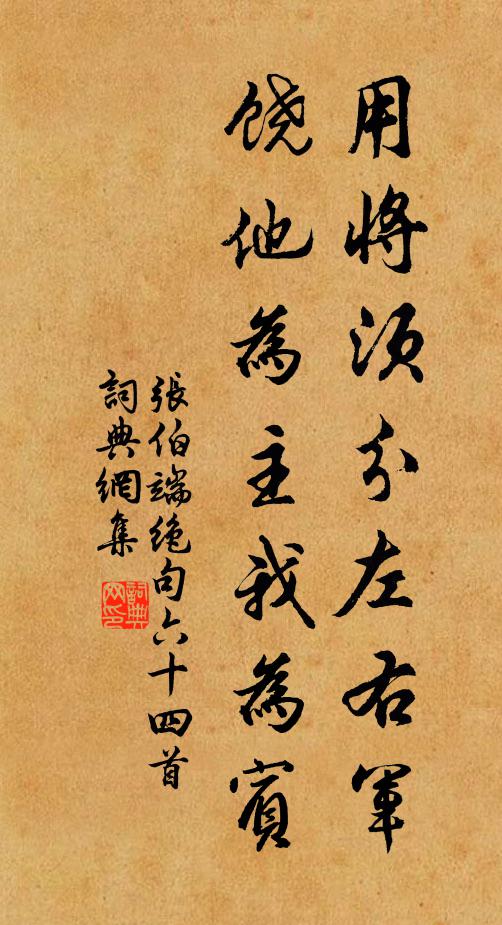 用將須分左右軍
饒他為主我為賓
張伯端絕句六十四首
詞典網集
詞典網印